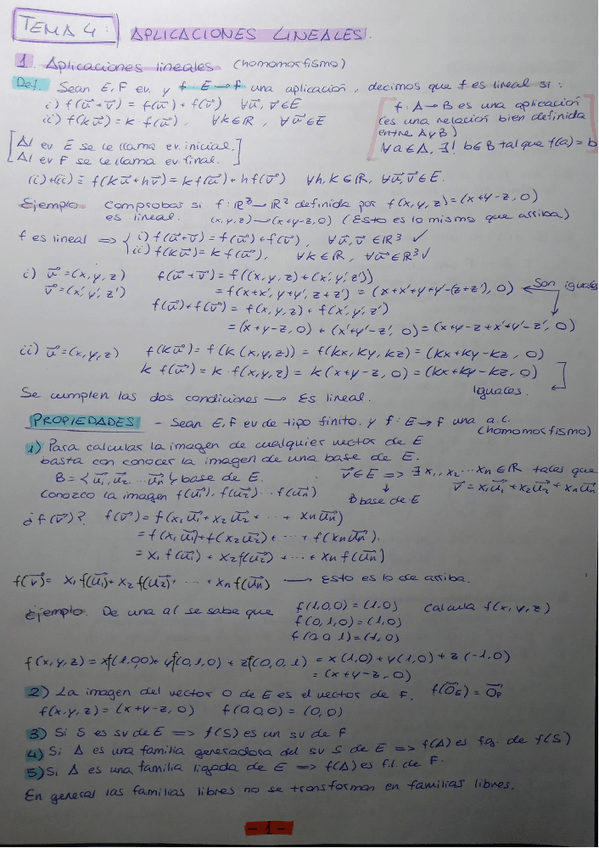 TEMA 4: APLICACIONES LINEALES.
1. Aplicaciones lineales (homomorfismo)
Def. Sean E, F ev. y f: E → F una aplicación, decimos que f es lineal si:
i) f(u⃗+v⃗) = f(u⃗) + f(v⃗) ∀u⃗, v⃗ ∈ E
ii) f(ku⃗) = k f(u⃗). ∀k∈ℝ, ∀u⃗ ∈ E
[f: A → B es una aplicación
(es una relación bien definida
entre A y B)
∀a∈A, ∃! b∈B tal que f(a) = b]
[Al ev E se le llama ev. inicial.
Al ev F se le llama ev final.]
(i)+(ii) = f(ku⃗+hv⃗) = k f(u⃗) + h f(v⃗) ∀h, k ∈ ℝ, ∀u⃗, v⃗ ∈ E.
Ejemplo. Comprobar si f: ℝ³ → ℝ² definida por f(x,y,z) = (x+y-z, 0)
es lineal. (x,y,z) → (x+y-z, 0) (Esto es lo mismo que arriba)
f es lineal ⟹ { i) f(u⃗+v⃗) = f(u⃗) + f(v⃗), ∀u⃗, v⃗ ∈ ℝ³ ✓
ii) f(ku⃗) = k f(u⃗), ∀k ∈ ℝ, ∀u⃗ ∈ ℝ³ ✓
i) u⃗ = (x, y, z) f(u⃗+v⃗) = f((x,y,z) + (x',y',z'))
v⃗ = (x', y', z') = f(x+x', y+y', z+z') = (x+x'+y+y'-(z+z'), 0) Son iguales
f(u⃗)+f(v⃗) = f(x,y,z) + f(x',y',z')
= (x+y-z, 0) + (x'+y'-z', 0) = (x+y-z+x'+y'-z', 0)
ii) u⃗ = (x, y, z) f(ku⃗) = f(k(x,y,z)) = f(kx, ky, kz) = (kx+ky-kz, 0)
k f(u⃗) = k · f(x,y,z) = k(x+y-z, 0) = (kx+ky-kz, 0)
Iguales.
Se cumplen las dos condiciones → Es lineal.
PROPIEDADES - Sean E, F ev de tipo finito. y f: E → F una a.l.
(homomorfismo)
1) Para calcular la imagen de cualquier vector de E
basta con conocer la imagen de una base de E.
B = {u⃗₁, u⃗₂ ... u⃗n} base de E. v⃗ ∈ E ⟹ ∃ x₁, x₂ ... xn ∈ ℝ tales que
Conozco la imagen f(u⃗₁), f(u⃗₂) ... f(u⃗n) B base de E v⃗ = x₁u⃗₁ + x₂u⃗₂ + ... xnu⃗n
¿f(v⃗)? f(v⃗) = f(x₁u⃗₁ + x₂u⃗₂ + ... + xnu⃗n)
= f(x₁u⃗₁) + f(x₂u⃗₂) + ... + f(xnu⃗n).
= x₁ f(u⃗₁) + x₂ f(u⃗₂) + ... + xn f(u⃗n)
f(v⃗) = x₁ f(u⃗₁) + x₂ f(u⃗₂) + ... + xn f(u⃗n) → Esto es lo de arriba.
Ejemplo. De una al se sabe que f(1,0,0) = (1,0) Calcula f(x,y,z)
f(0,1,0) = (1,0)
f(0,0,1) = (1,0)
f(x,y,z) = xf(1,0,0) + yf(0,1,0) + zf(0,0,1) = x(1,0) + y(1,0) + z(-1,0)
= (x+y-z, 0)
2) La imagen del vector 0 de E es el vector de F. f(0⃗E) = 0⃗F
f(x,y,z) = (x+y-z, 0) f(0,0,0) = (0,0)
3) Si S es sv de E ⟹ f(S) es un sv de F
4) Si A es una familia generadora del sv S de E ⟹ f(A) es f.g. de f(S)
5) Si A es una familia ligada de E ⟹ f(A) es f.l. de F.
En general las familias libres no se transforman en familias libres.
- 1 -